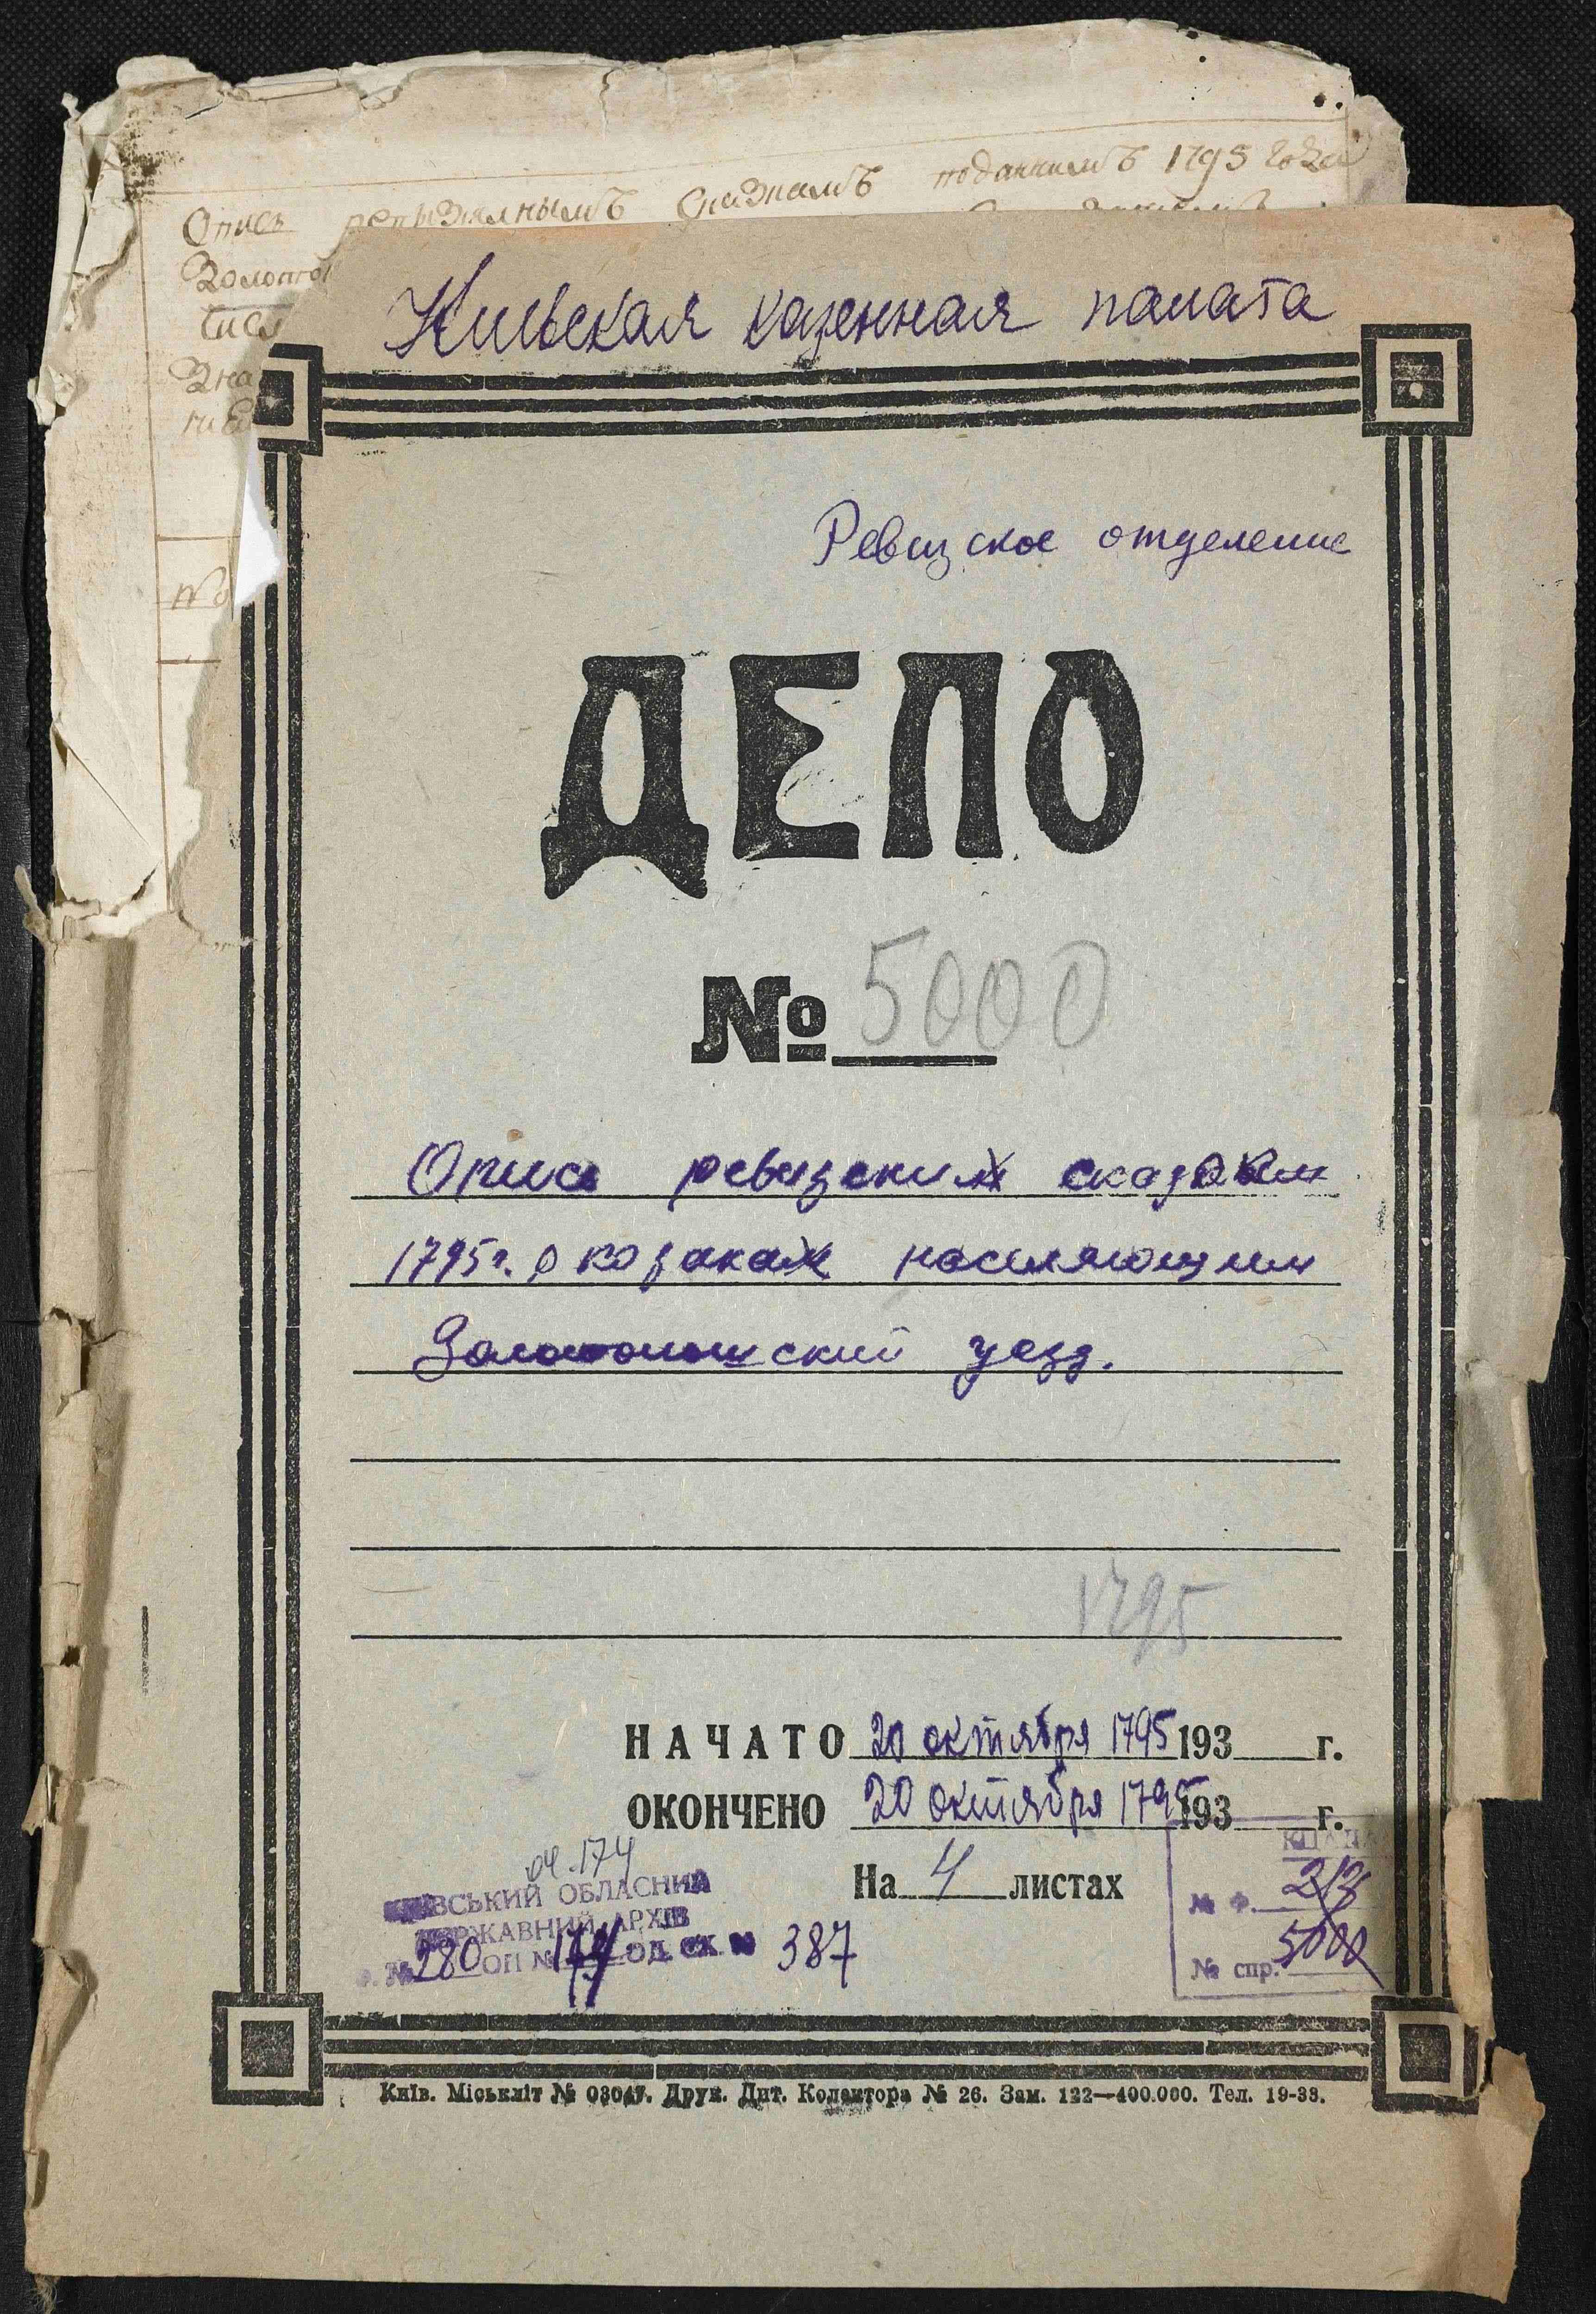 Опись ревизялнымъ Сказкамъ поданнимъ 1795 Года
Золото
Числ
Зна
Киевская казенная палата
Ревизское отделение
ДЕЛО
№ 5000
Опись ревизским сказкам
1795 г. о козаках населяющим
Золотоношский уезд.
1795
НАЧАТО 20 октября 1795 193 г.
ОКОНЧЕНО 20 октября 1795 193 г.
На 4 листах
оп. 174
КИЇВСЬКИЙ ОБЛАСНИЙ
ДЕРЖАВНИЙ АРХІВ
Ф. № 280 ОП № 174 ОД. СХ. № 387
№ Ф.
№ спр. 5000
Київ. Міськліт № 03047. Друк. Дит. Колектора № 26. Зам. 122—400.000. Тел. 19-38.